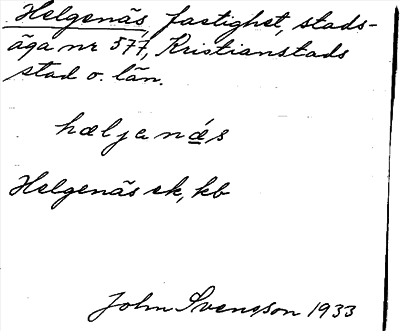 Helgenäs, fastighet, stads-
äga nr 577, Kristianstads
stad o. län.
hæljanä́s
Helgenäs ek, kb
John Svensson 1933